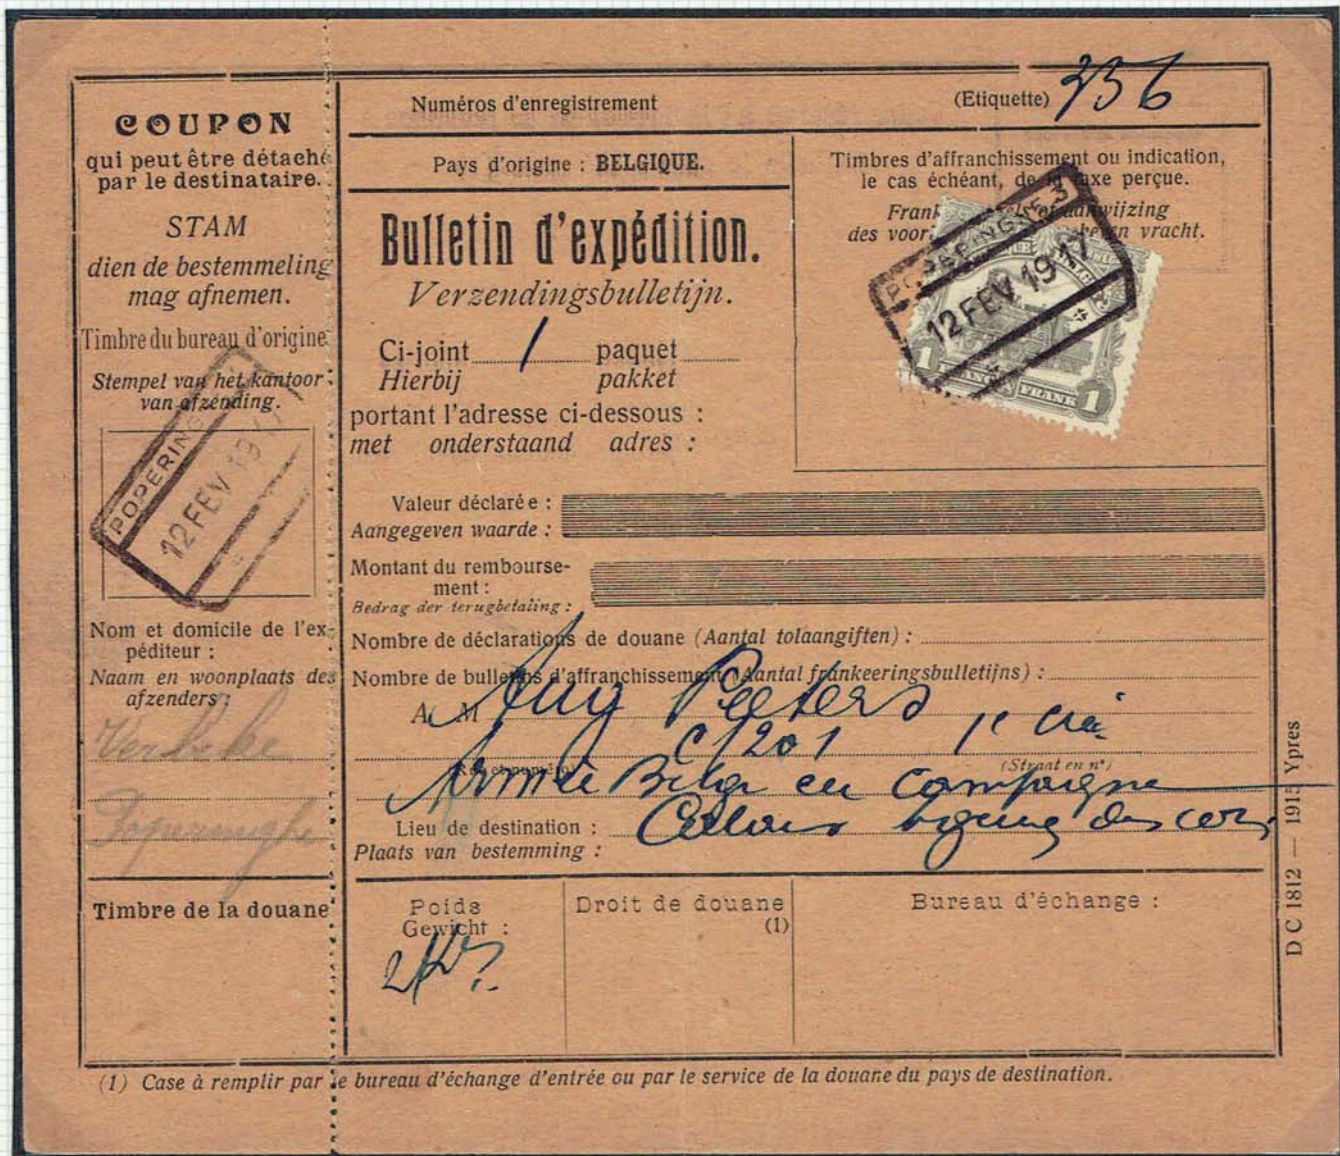 COUPON
qui peut être détaché
par le destinataire.
STAM
dien de bestemmeling
mag afnemen.
Timbre du bureau d'origine
Stempel van het kantoor
van afzending.
POPERING
12 FEV 1917
Nom et domicile de l'ex-
péditeur :
Naam en woonplaats des
afzenders :
Poperinghe
Timbre de la douane
Numéros d'enregistrement
(Etiquette) 356
Pays d'origine : BELGIQUE.
Bulletin d'expédition.
Verzendingsbulletijn.
Ci-joint 1 paquet
Hierbij pakket
portant l'adresse ci-dessous :
met onderstaand adres :
Timbres d'affranchissement ou indication,
le cas échéant, de la taxe perçue.
Frank aanwijzing
des voor vracht.
POPERINGHE 3
12 FEV 1917
1 FRANC FRANK 1
Valeur déclarée :
Aangegeven waarde :
Montant du rembourse-
ment :
Bedrag der terugbetaling :
Nombre de déclarations de douane (Aantal tolaangiften) :
Nombre de bulletins d'affranchissement (Aantal frankeeringsbulletijns) :
A M Aug Peeters
C 1201 1e Cie
(Straat en n°)
Armée Belge en campagne
Lieu de destination : Calais
Plaats van bestemming :
Poids
Gewicht :
Droit de douane
(1)
Bureau d'échange :
D C 1812 — 1915 Ypres
(1) Case à remplir par le bureau d'échange d'entrée ou par le service de la douane du pays de destination.